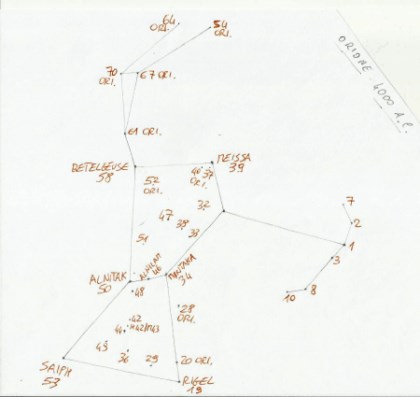 64
ORI.
54
ORI.
ORIONE 4000 A.C.
70
ORI.
67 ORI.
61 ORI.
BETELGEUSE
58
MEISSA
39
52
ORI.
40
37
ORI.
32
47
38
33
51
7
2
1
3
8
10
ALNITAK
50
ALNILAM
46
MINTAKA
34
48
28
ORI.
42
44
42/43
49
36
29
20 ORI.
SAIPH
53
RIGEL
19